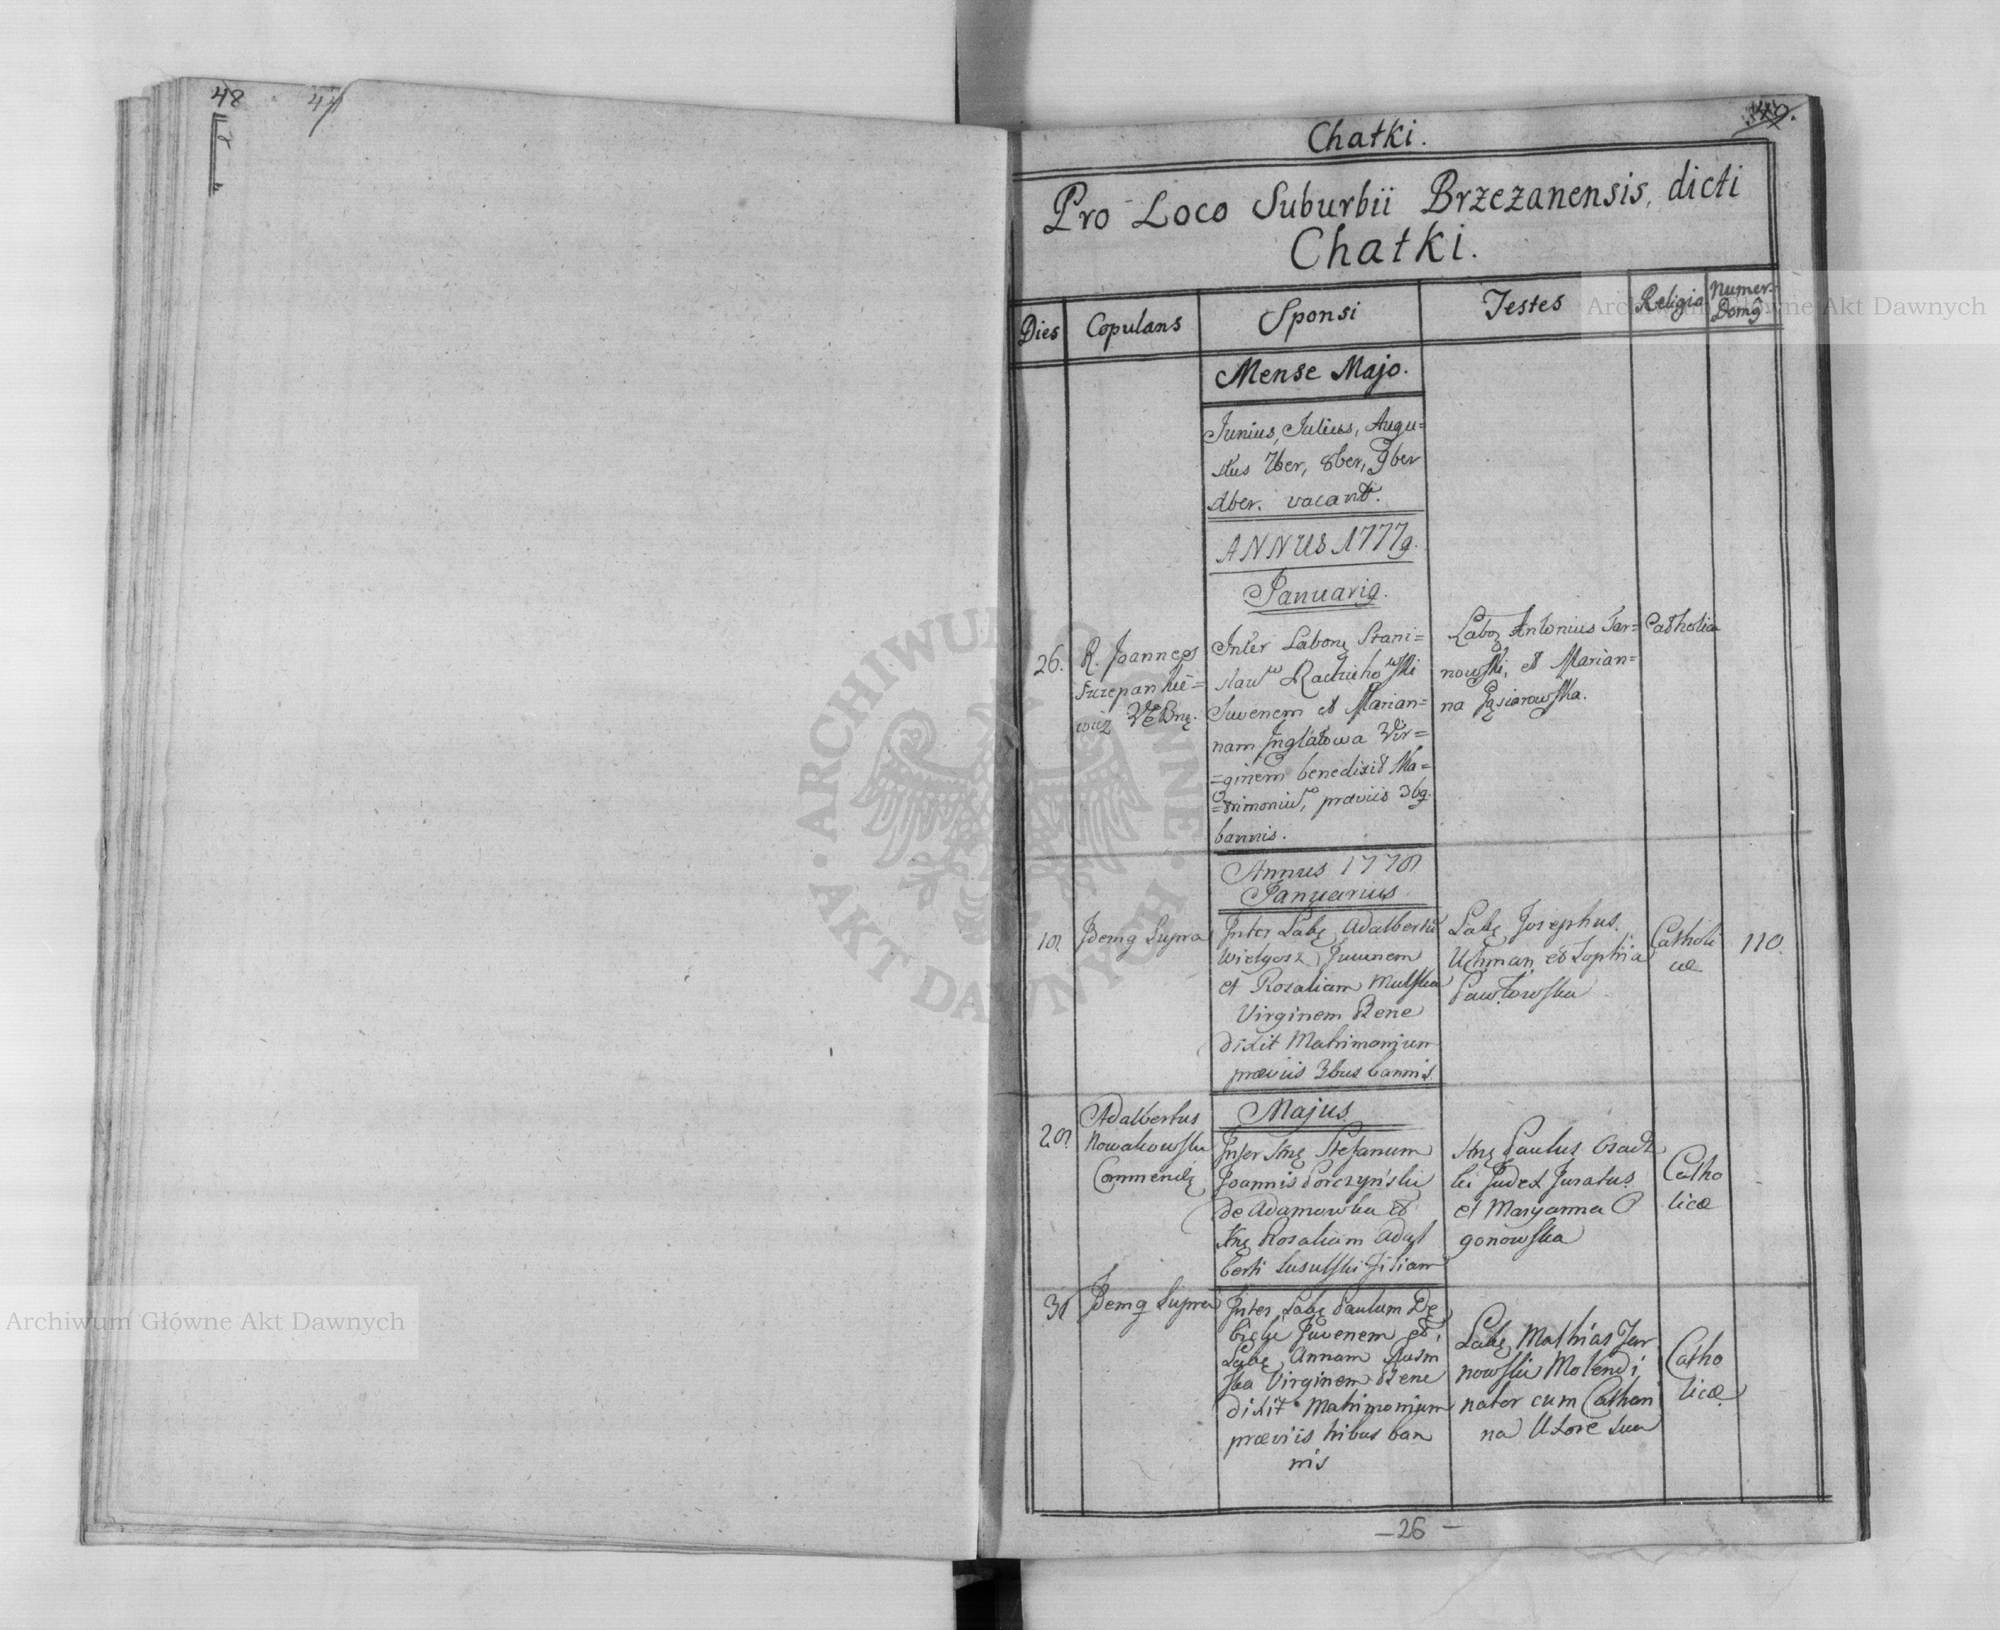 48
44
Chatki.
49.
Pro Loco Suburbii Brzezanensis, dicti
Chatki.
Dies
Copulans
Sponsi
Testes
Religio
Numer.
Dom9
Mense Majo.
Junius, Julius, Augu=
stus 7ber, 8ber, 9ber
Xber. vacant.
ANNUS 1777
Januari9.
26.
R. Joannes
Szczepankie=
wicz
Inter Labor Stani=
slaw
Juvenem et Marian=
nam Inglatowa Vir=
=ginem benedixit Ma=
=trimoniu, præviis 3b9
bannis.
Labor Antonius Tar=
nowski, et Marian=
na Gąsiorowska.
Catholica
Annus 1778
Januarius
18
Idem9 Supra
Inter Lab Adalbertu
Wielgosz Juvenem
et Rosaliam Mulska
Virginem Bene
dixit Matrimonium
præviis 3bus bannis.
Lab Josephus
et Sophia
Pawłowska
Catholi
cæ
110.
28
Adalbertus
Nowakowski
Commend
Majus
Inter Stefanum
Joannis Porczyński
de Adamowka et
Rosaliam Adal
berti Susulski Filiam
Paulus Osadz
ki Judex Juratus
et Maryanna O
gonowska
Catho
licæ
31
Idem9 Supra
Inter Lab Paulum Dę
bicki Juvenem et
Lab Annam
ska Virginem Bene
dixit Matrimonium
præviis tribus ban
nis
Lab Mathias Jar
nowski Molendi
nator cum Cathari
na Uxore sua
Catho
licæ
– 26 –
ARCHIWUM GŁÓWNE AKT DAWNYCH
Archiwum Główne Akt Dawnych
Archiwum Główne Akt Dawnych